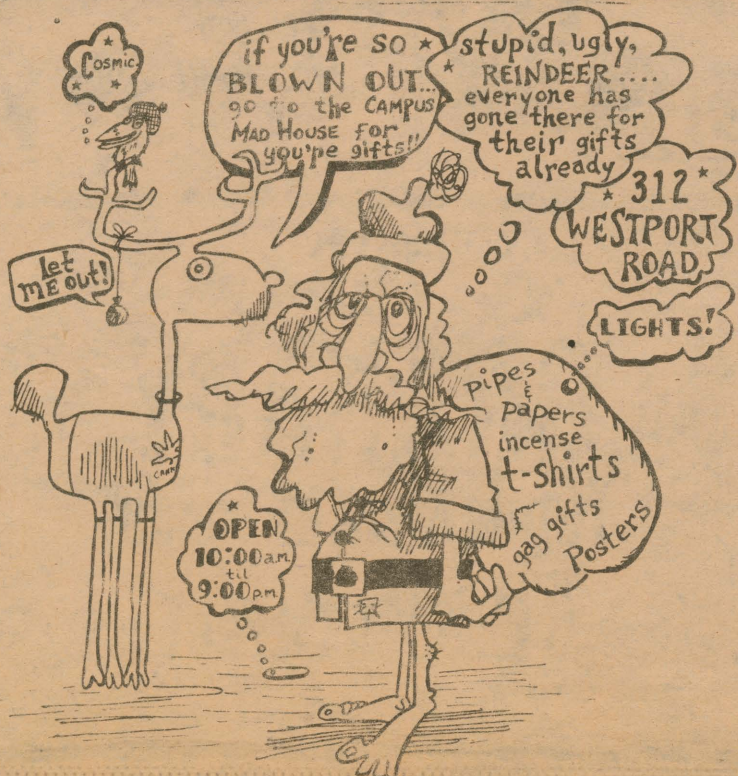 Cosmic
if you're so
BLOWN OUT...
go to the CAMPUS
MAD HOUSE for
you'pe gifts!!
stupid, ugly,
REINDEER....
everyone has
gone there for
their gifts
already
312
WESTPORT
ROAD
let
ME out!
LIGHTS!
pipes
&
papers
incense
t-shirts
gag gifts
Posters
OPEN
10:00 a.m.
til
9:00 p.m.